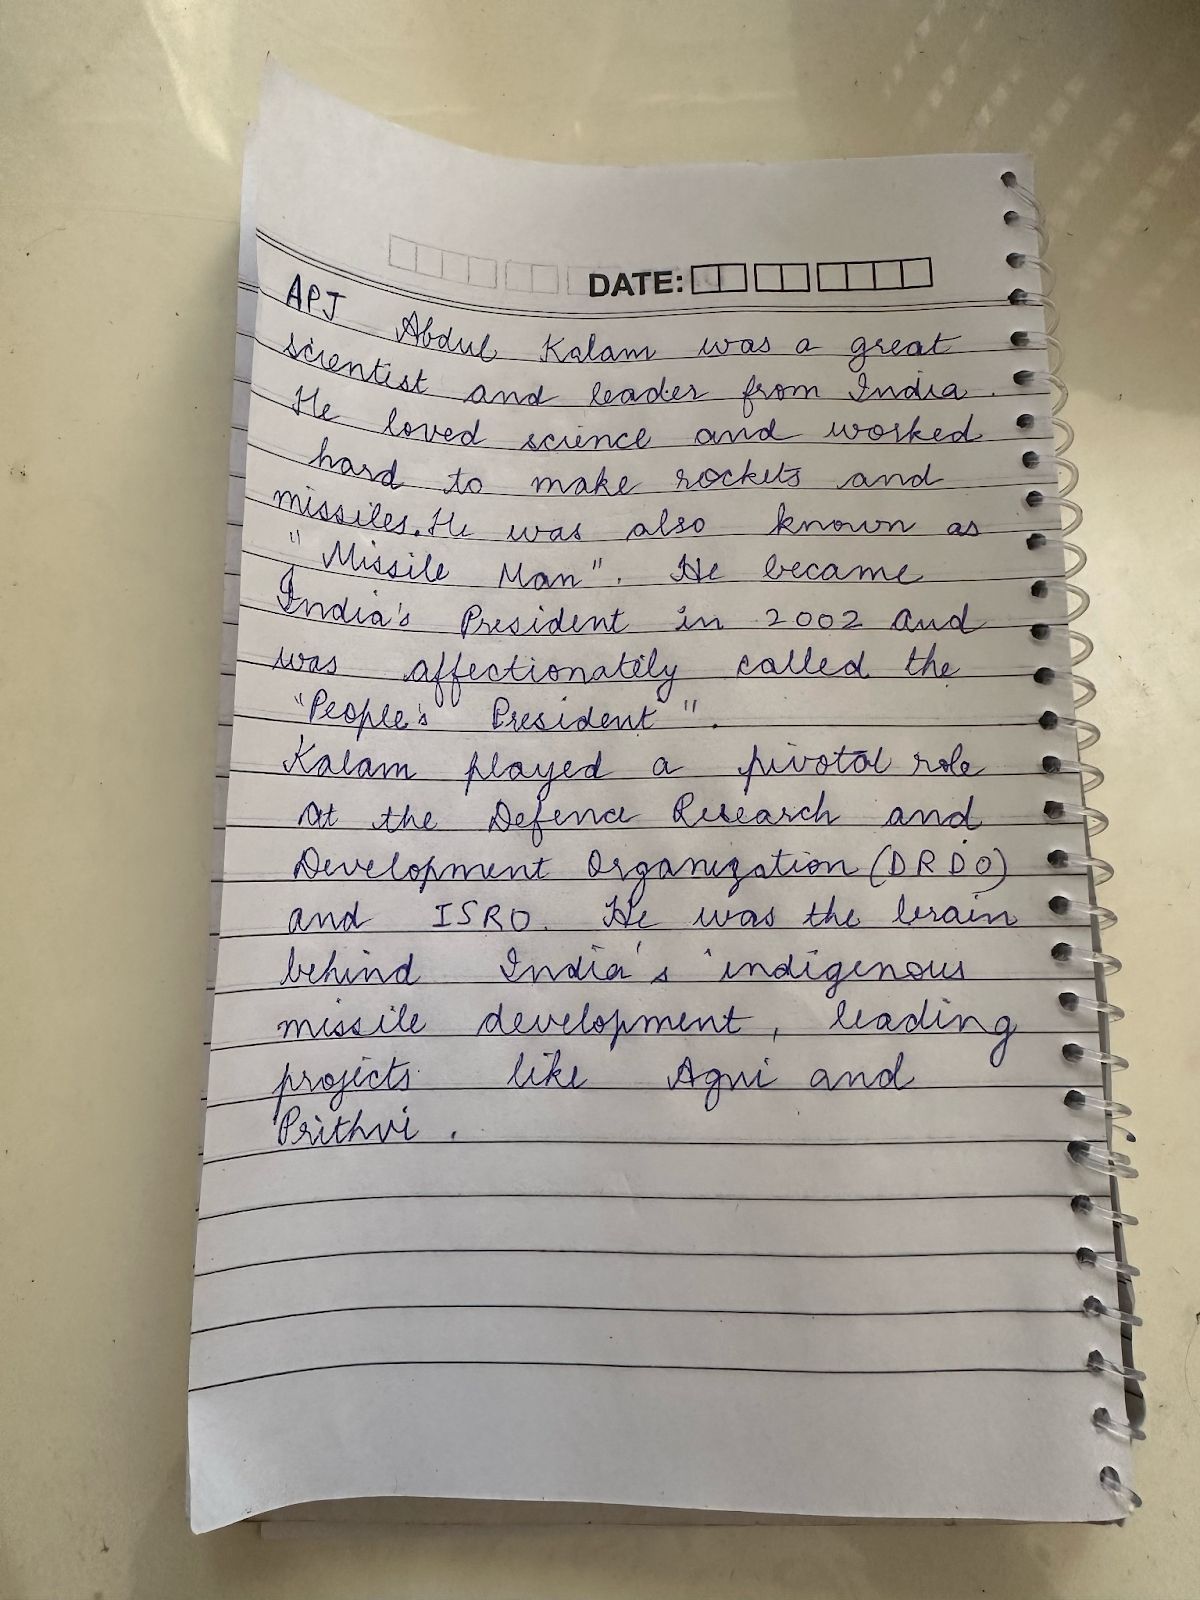 DATE:
APJ Abdul Kalam was a great
scientist and leader from India.
He loved science and worked
hard to make rockets and
missiles. He was also known as
"Missile Man". He became
India's President in 2002 and
was affectionately called the
"People's President".
Kalam played a pivotal role
at the Defence Research and
Development Organization (DRDO)
and ISRO. He was the brain
behind India's indigenous
missile development, leading
projects like Agni and
Prithvi.